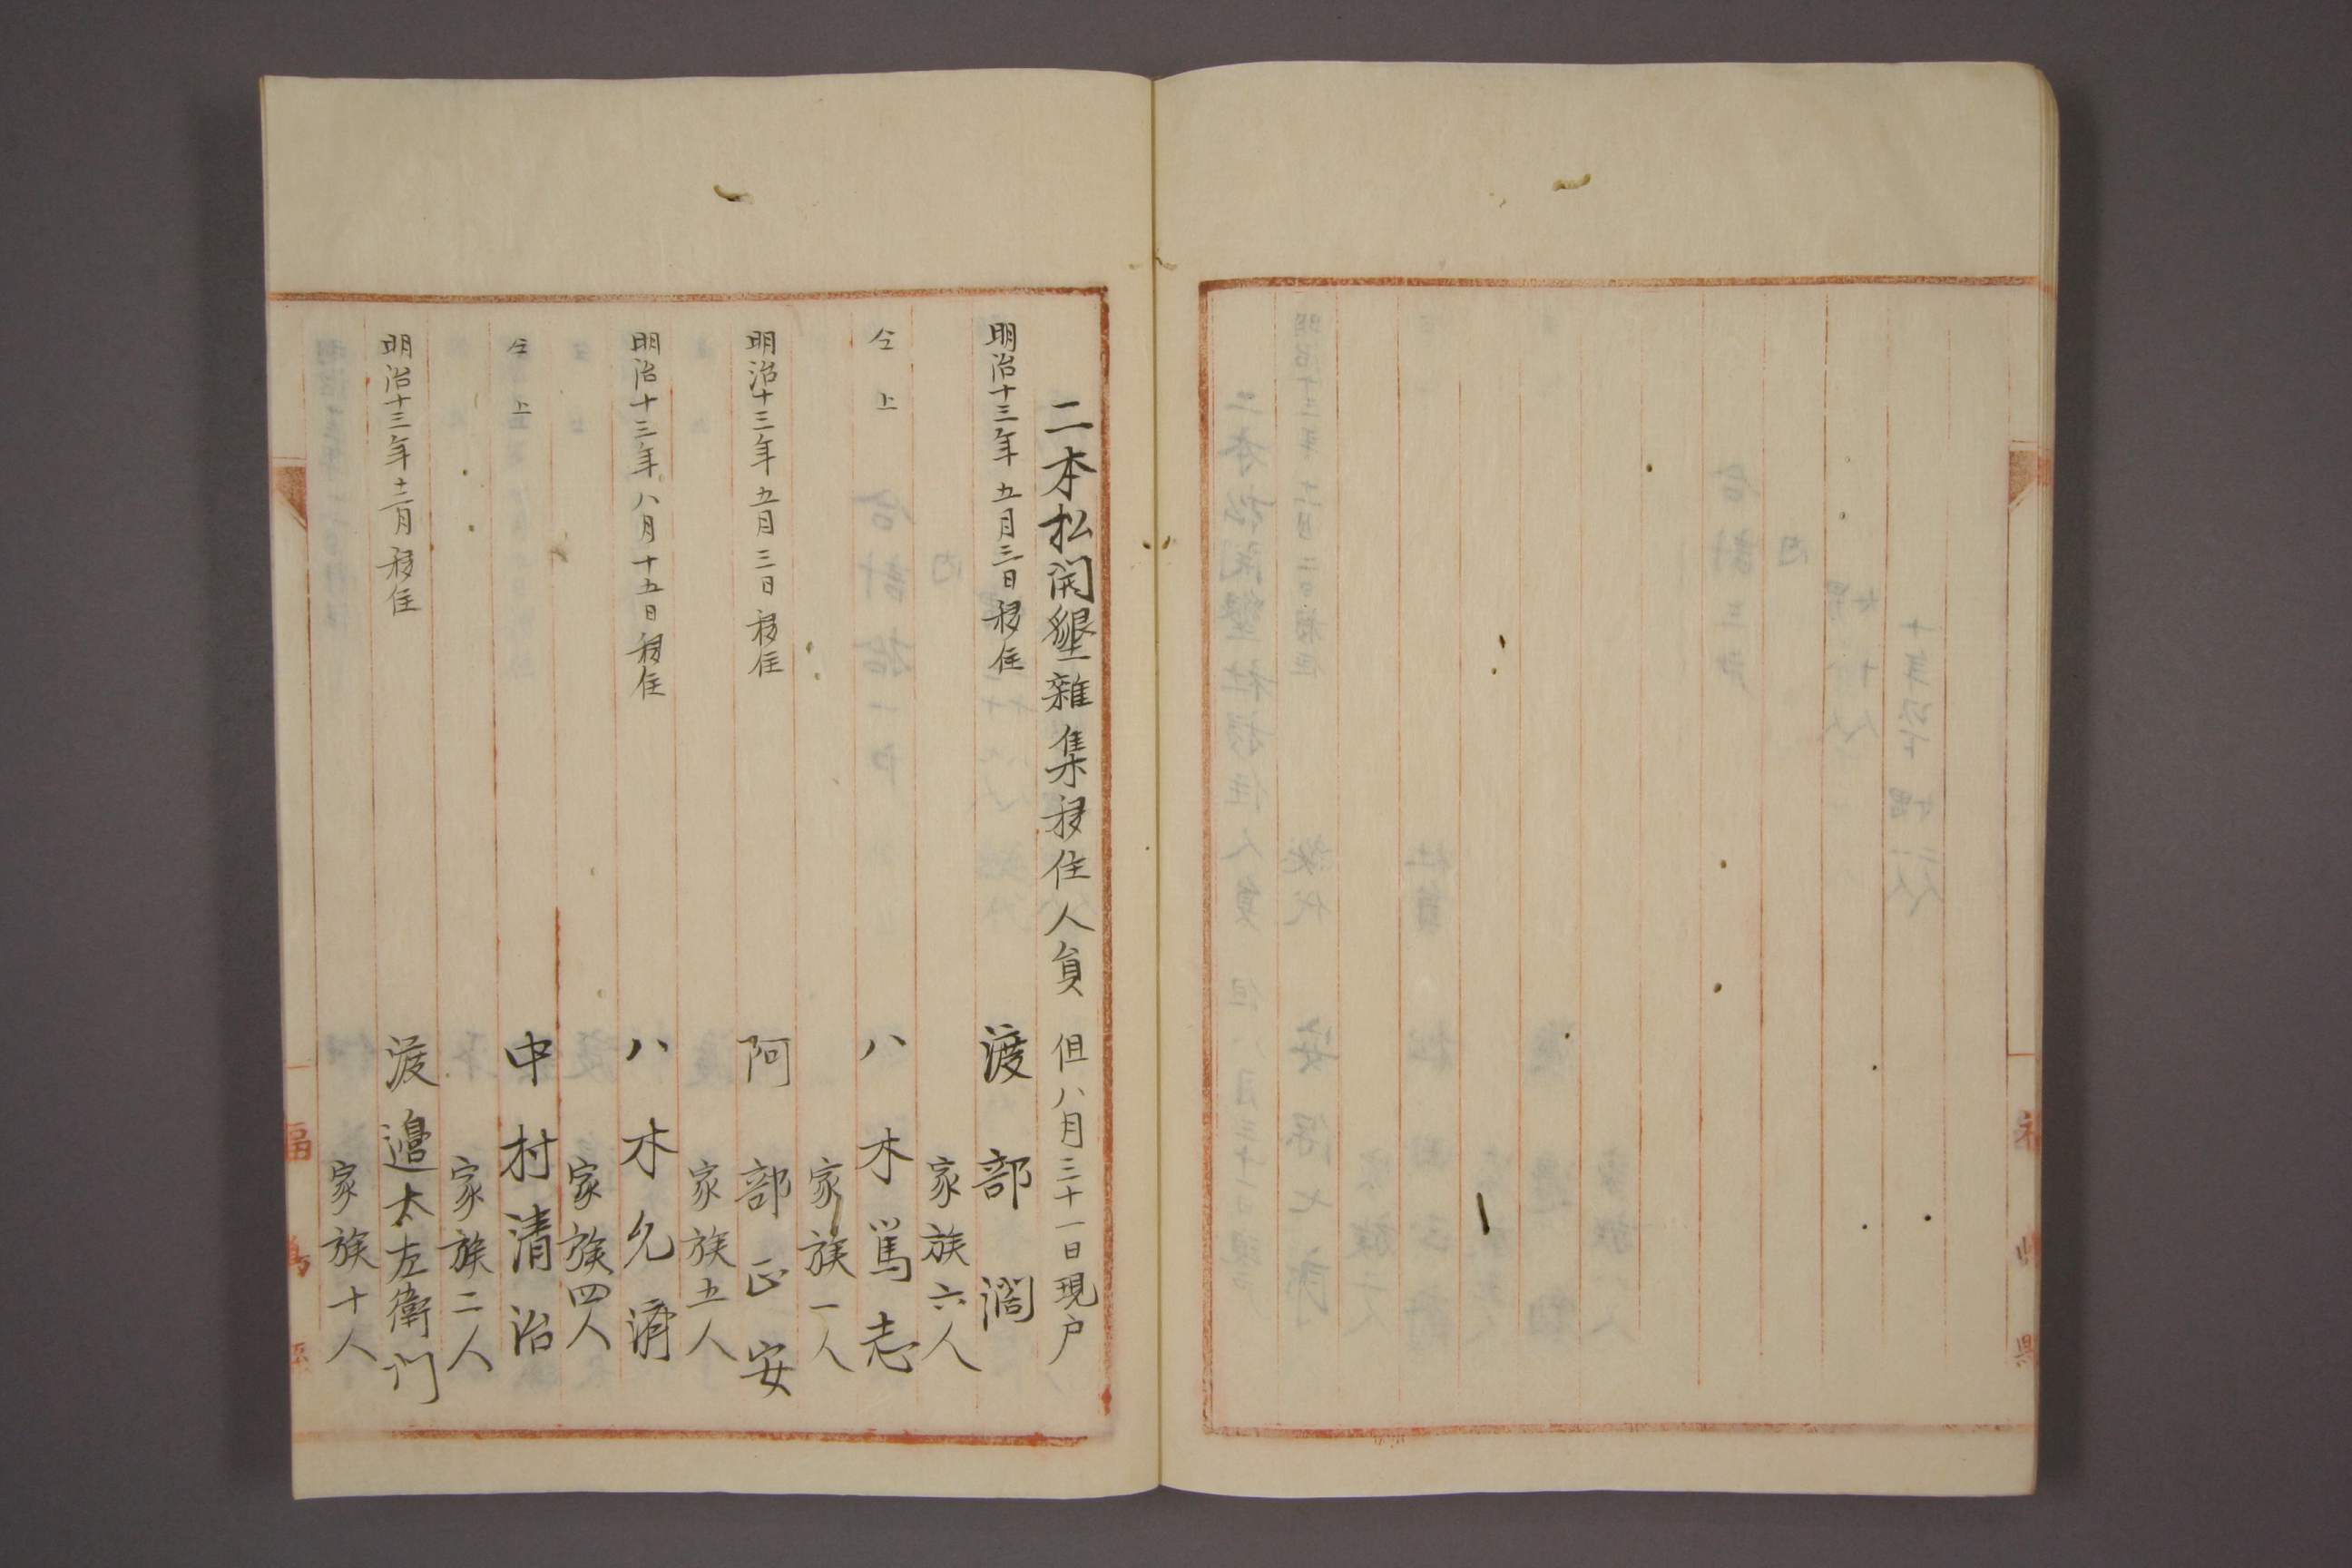 二本松開墾雜集移住人員 但八月三十一日現户
明治十三年五月三日移住 渡部濶
家族六人
仝上 八木篤志
家族一人
明治十三年五月三日移住 阿部正安
家族五人
明治十三年八月十五日移住 八木允済
家族四人
仝上 中村清治
家族二人
明治十三年十二月移住 渡邉太左衛門
家族十人
福島縣